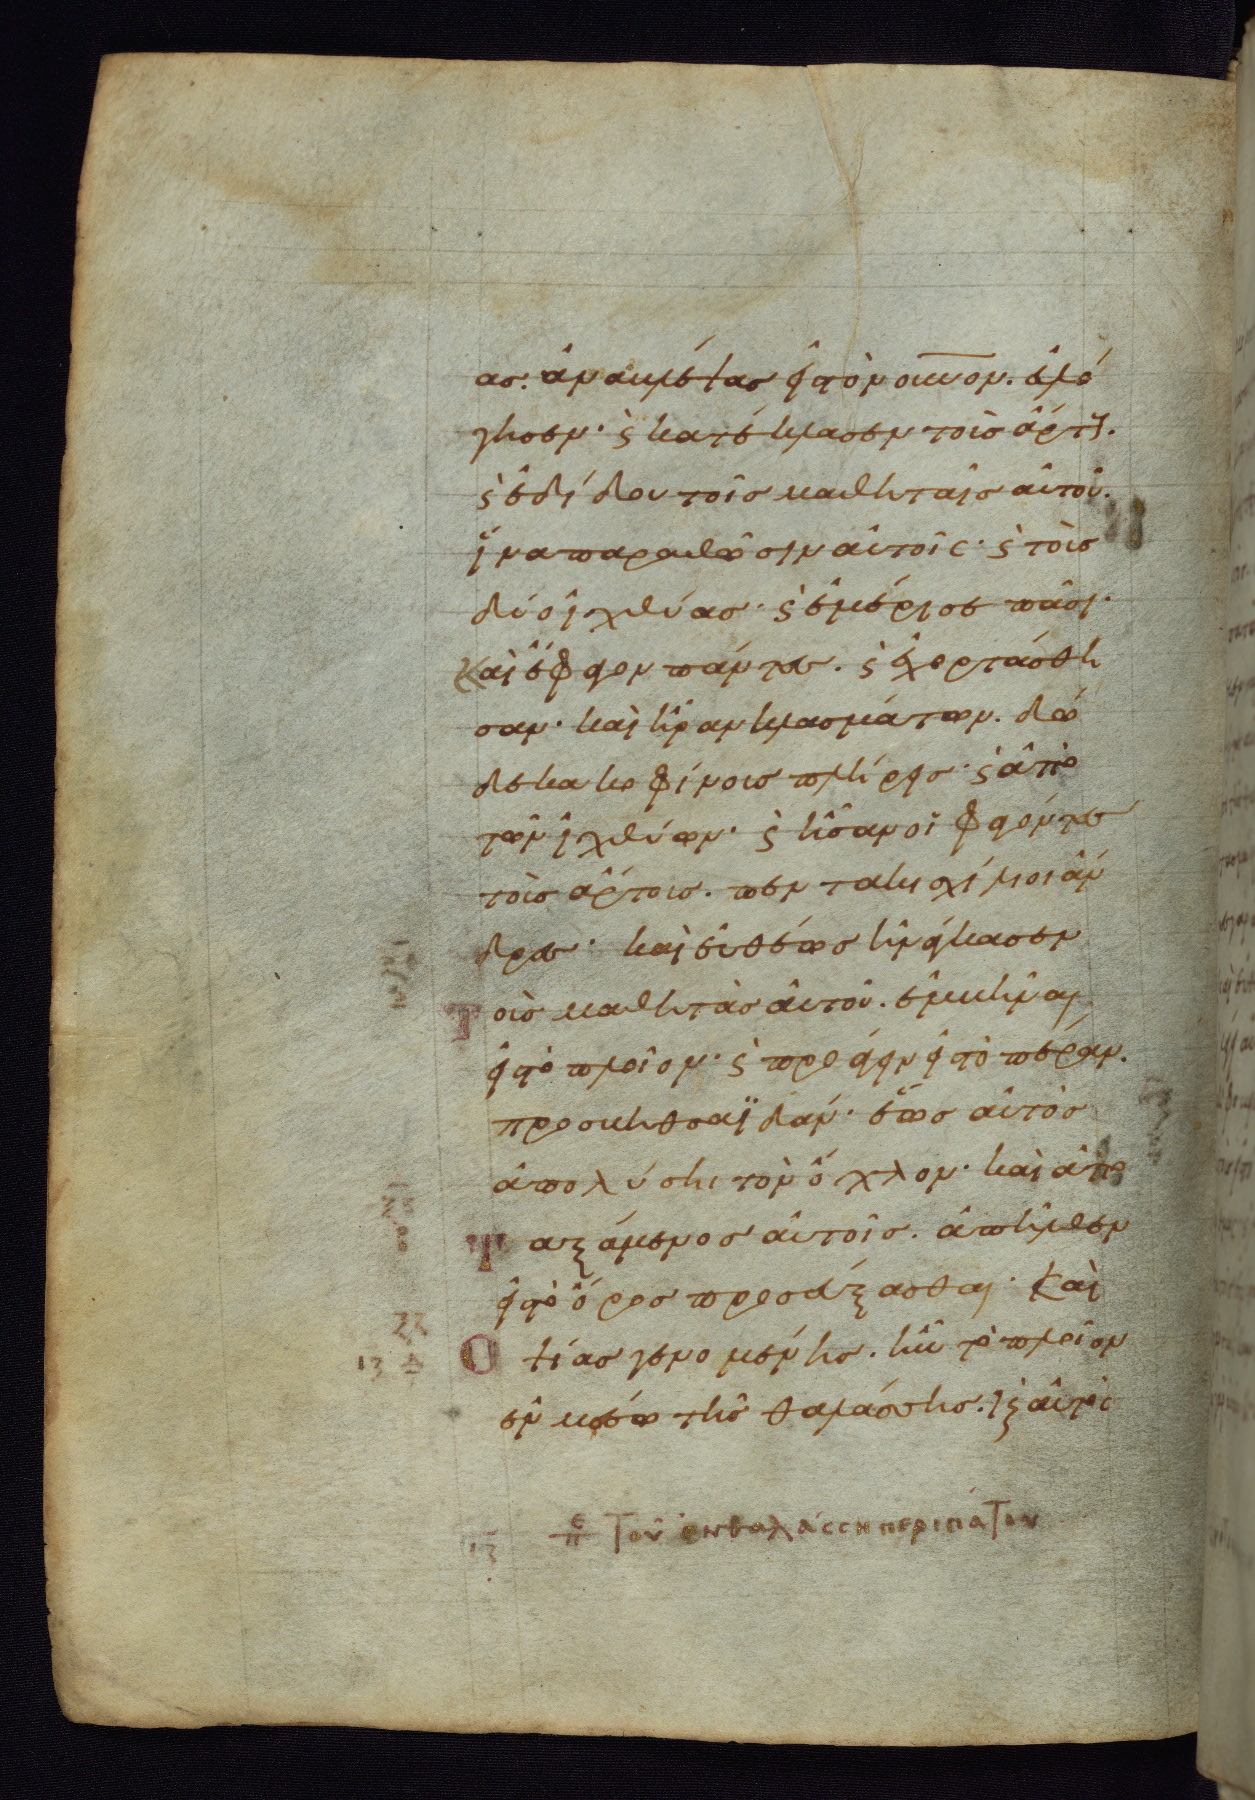 ας. ἀναβλέψας εἰς τὸν ουνον. εὐλό
γησεν· ϗ κατέκλασεν τοὺς ἄρτους.
ϗ ἐδίδου τοῖς μαθηταῖς αὐτοῦ.
ἵνα παραθῶσιν αὐτοῖς· ϗ τοὺς
δύο ἰχθύας· ϗ ἐμέρισε πᾶσι·
Καὶ ἔφαγον πάντες. ϗ ἐχορτάσθη
σαν· καὶ ἦραν κλασμάτων. δώ
δεκα κοφίνους πλήρεις· ϗ ἀπὸ
τῶν ἰχθύων· ϗ ἦσαν οἱ φαγόντες
τοὺς ἄρτους. πεντακισχίλιοι ἄν
δρες· καὶ εὐθέως ἠνάγκασεν
Τοὺς μαθητὰς αὐτοῦ. ἐμβῆναι
εἰς τὸ πλοῖον· ϗ προάγειν εἰς τὸ πέραν.
πρὸς βηθσαϊδάν· ἕως αὐτὸς
ἀπολύσηι τὸν ὄχλον· καὶ ἀπο
Ταξάμενος αὐτοῖς. ἀπῆλθεν
εἰς τὸ ὄρος προσεύξασθαι· Καὶ
Οψίας γενομένης. ἦν τὸ πλοῖον
ἐν μέσω τῆς θαλάσσης. ϗ αὐτὸς
ιζ πε Τοῦ ἐν θαλάσση περιπάτου